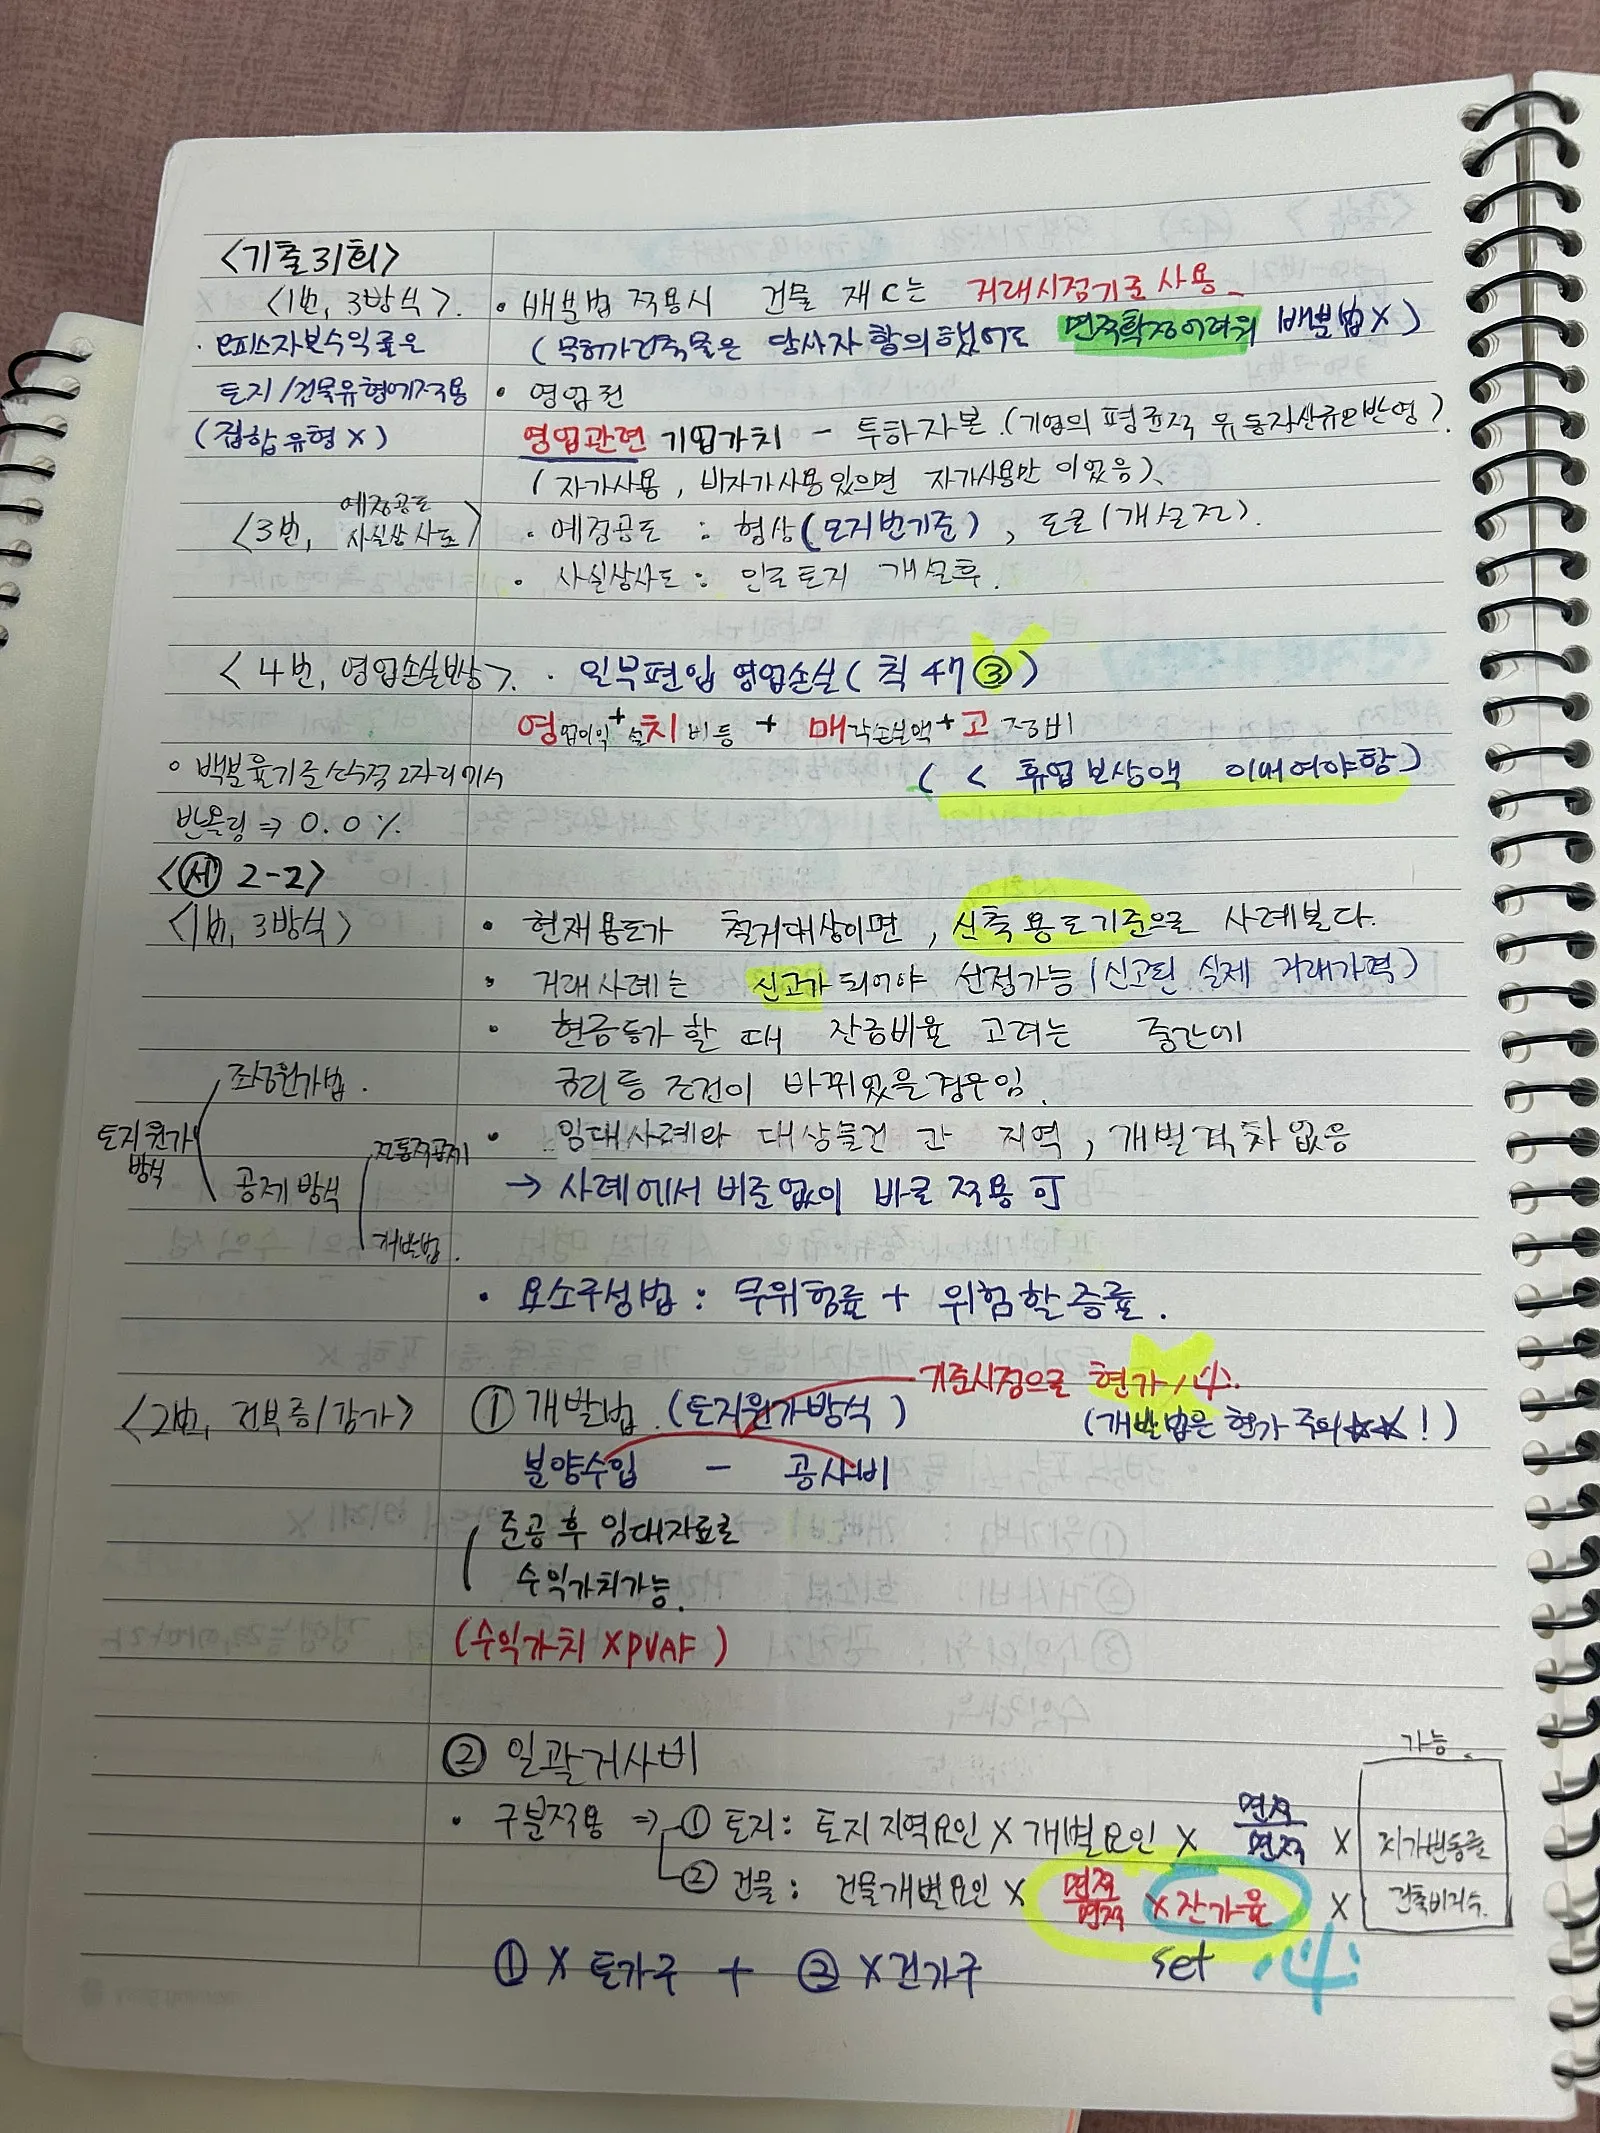 <기출31회>
<1번, 3방식>.
· 오피스자본수익률은
토지/건물유형에적용
(집합유형X)
· 배분법 적용시 건물 재C는 거래시점기준 사용.
(무허가건축물은 당사자 합의했어도 면적확정어려워 배분법X)
· 영업권
영업관련 기업가치 - 투하자본.(기업의 평균적 유동자산규모반영).
(자가사용, 비자가사용있으면 자가사용만 이었음).
<3번, 예정공도 사실상사도>
· 예정공도 : 형상(모지번기준), 도로(개설전).
· 사실상사도: 인근토지 개설후.
<4번, 영업손실보상>. · 일부편입 영업손실(칙 47③)
영업이익+설치비등 + 매각손실액+고정비
(< 휴업보상액 이내여야함)
· 백분율기준 소수점 2자리에서
반올림 ⇒ 0.0%
<서 2-2>
<1번, 3방식>
· 현재용도가 철거대상이면, 신축용도기준으로 사례본다.
· 거래사례는 신고가 되어야 선정가능(신고된 실제 거래가격)
· 현금등가 할 때 잔금비율 고려는 중간에
금리등 조건이 바뀌었을경우임.
· 임대사례와 대상물건 간 지역, 개별격차없음
→ 사례에서 비준없이 바로 적용 可
토지원가방식
조성원가법.
공제방식
전통적공제
개발법.
· 요소구성법: 무위험률 + 위험할증률.
<2번, 전부증/감가>
① 개발법.(토지원가방식)
기준시점으로 현가!
(개발법은 현가 주의☆☆!)
분양수입 - 공사비
준공 후 임대자료로
수익가치가능.
(수익가치 X PVAF)
② 일괄거사비
· 구분적용 ⇒ ① 토지: 토지지역요인 X 개별요인 X 면적/면적 X
② 건물: 건물개별요인 X 면적/면적 X 잔가율 X
가능
지가변동률
건축비지수.
set
① X 토가구 + ② X 건가구